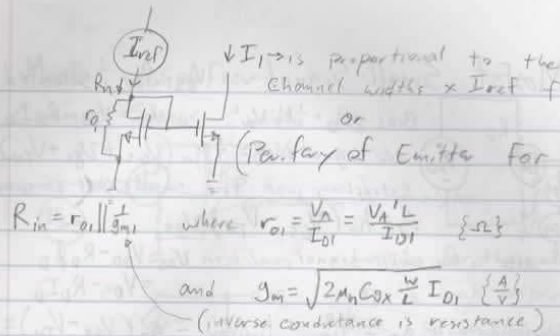 Iref
↓ I₁ → is proportional to the
Rin↓
channel widths x Iref f
ro₁
or
(Perifery of Emitter for
Rin = ro₁ || 1/gm₁ where ro₁ = VA/ID1 = VA'L/ID1 {Ω}
and gm = √(2μnCox W/L ID1) {A/V}
(inverse conductance is resistance)